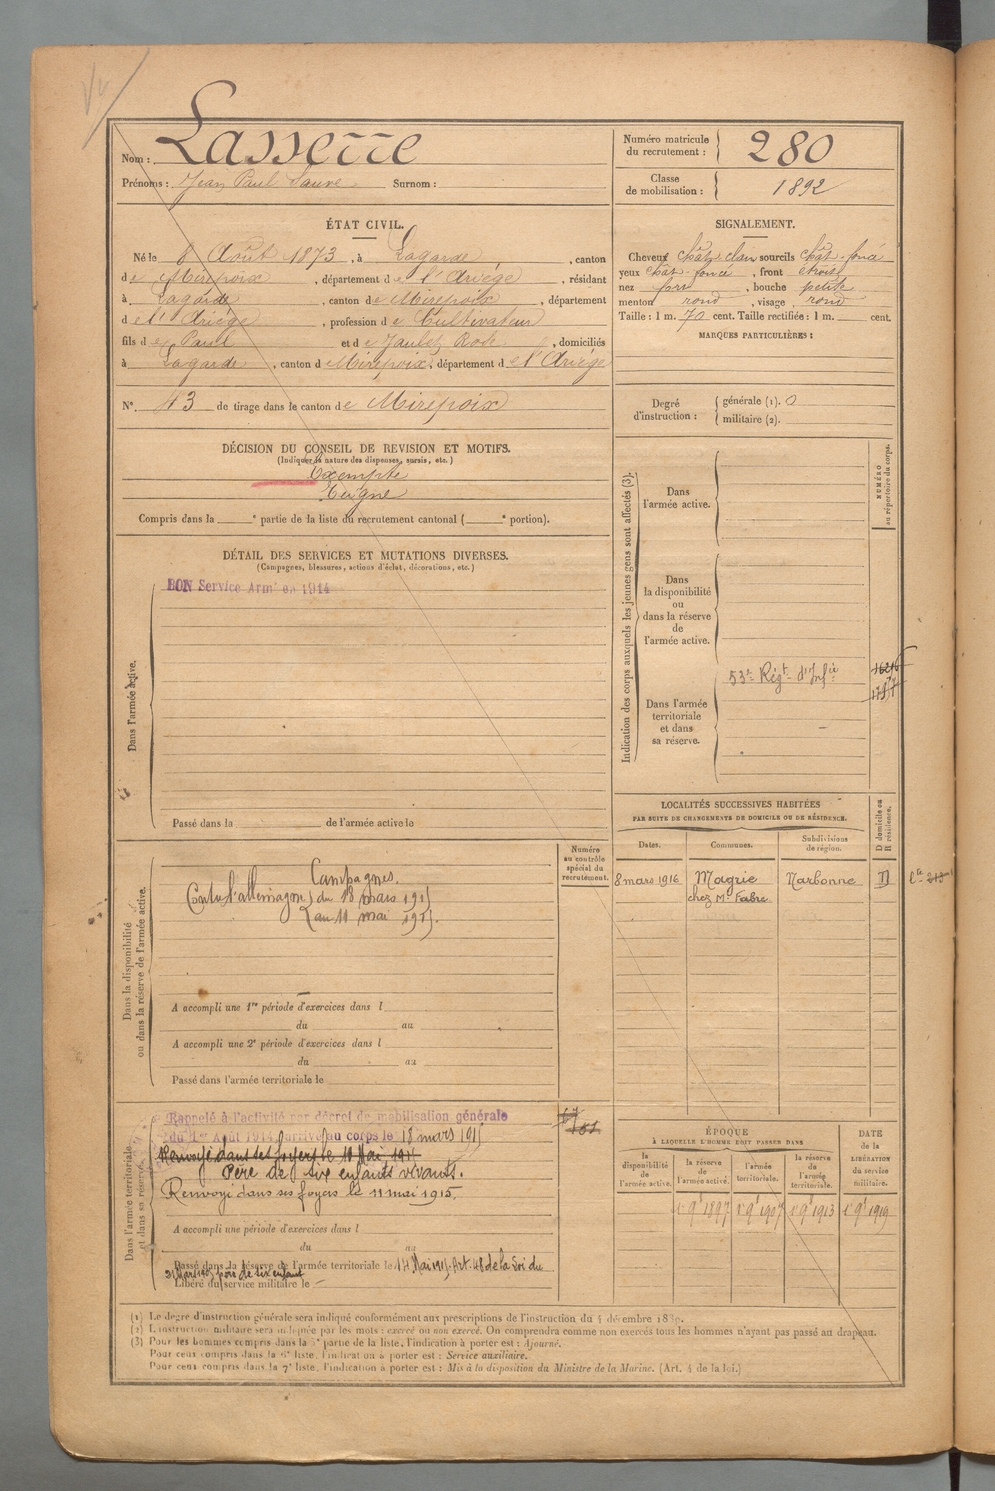 Nom : Lasserre
Prénoms : Jean Paul Sauve Surnom :
Numéro matricule du recrutement : 280
Classe de mobilisation : 1892
ÉTAT CIVIL.
Né le 8 Août 1873, à Lagarde, canton
de Mirepoix, département de l'Ariège, résidant
à Lagarde, canton de Mirepoix, département
de l'Ariège, profession de Cultivateur
fils de Paul et de Jaubet Rose, domiciliés
à Lagarde, canton de Mirepoix, département de l'Ariège
N° 43 de tirage dans le canton de Mirepoix
SIGNALEMENT.
Cheveux chât. clair sourcils chât. foncé
yeux chât. foncé, front étroit
nez fort, bouche petite
menton rond, visage rond
Taille : 1 m. 70 cent. Taille rectifiée : 1 m. cent.
MARQUES PARTICULIÈRES :
Degré d'instruction : générale (1). 0
militaire (2).
DÉCISION DU CONSEIL DE REVISION ET MOTIFS.
(Indiquer la nature des dispenses, sursis, etc.)
Exempté
Teigne
Compris dans la e partie de la liste du recrutement cantonal ( e portion).
DÉTAIL DES SERVICES ET MUTATIONS DIVERSES.
(Campagnes, blessures, actions d'éclat, décorations, etc.)
BON Service Armé en 1914
Dans l'armée active.
Passé dans la de l'armée active le
Indication des corps auxquels les jeunes gens sont affectés (3).
NUMÉRO au répertoire du corps.
Dans l'armée active.
Dans la disponibilité ou dans la réserve de l'armée active.
Dans l'armée territoriale et dans sa réserve.
53e Régt d'Infie
LOCALITÉS SUCCESSIVES HABITÉES
PAR SUITE DE CHANGEMENTS DE DOMICILE OU DE RÉSIDENCE.
Dates. Communes. Subdivisions de région. D domicile ou R résidence.
8 mars 1916 Magrie Narbonne D
chez Mr Fabre
Dans la disponibilité ou dans la réserve de l'armée active.
Numéro au contrôle spécial du recrutement.
Campagnes.
Contre l'allemagne du 18 mars 1915
au 11 mai 1915.
A accompli une 1re période d'exercices dans l
du au
A accompli une 2e période d'exercices dans l
du au
Passé dans l'armée territoriale le
Dans l'armée territoriale et dans sa réserve.
Rappelé à l'activité par décret de mobilisation générale
du 1er Août 1914, arrivé au corps le 18 mars 1915
Renvoyé dans ses foyers le 10 Mai 1915
Père de six enfants vivants.
Renvoyé dans ses foyers le 11 mai 1915.
A accompli une période d'exercices dans l
du au
Passé dans la réserve de l'armée territoriale le 14 Mai 1915 Art. 48 de la Loi du
21 Mars 1905, père de six enfants
Libéré du service militaire le
ÉPOQUE
À LAQUELLE L'HOMME DOIT PASSER DANS
la disponibilité de l'armée active. la réserve de l'armée active. l'armée territoriale. la réserve de l'armée territoriale.
DATE de la LIBÉRATION du service militaire.
1er 9e 1897 1er 9e 1907 1er 9e 1913 1er 9e 1919
(1) Le degré d'instruction générale sera indiqué conformément aux prescriptions de l'instruction du 4 décembre 1889.
(2) L'instruction militaire sera indiquée par les mots : exercé ou non exercé. On comprendra comme non exercés tous les hommes n'ayant pas passé au drapeau.
(3) Pour les hommes compris dans la 5e partie de la liste, l'indication à porter est : Ajourné.
Pour ceux compris dans la 6e liste, l'indication à porter est : Service auxiliaire.
Pour ceux compris dans la 7e liste, l'indication à porter est : Mis à la disposition du Ministre de la Marine. (Art. 4 de la loi.)